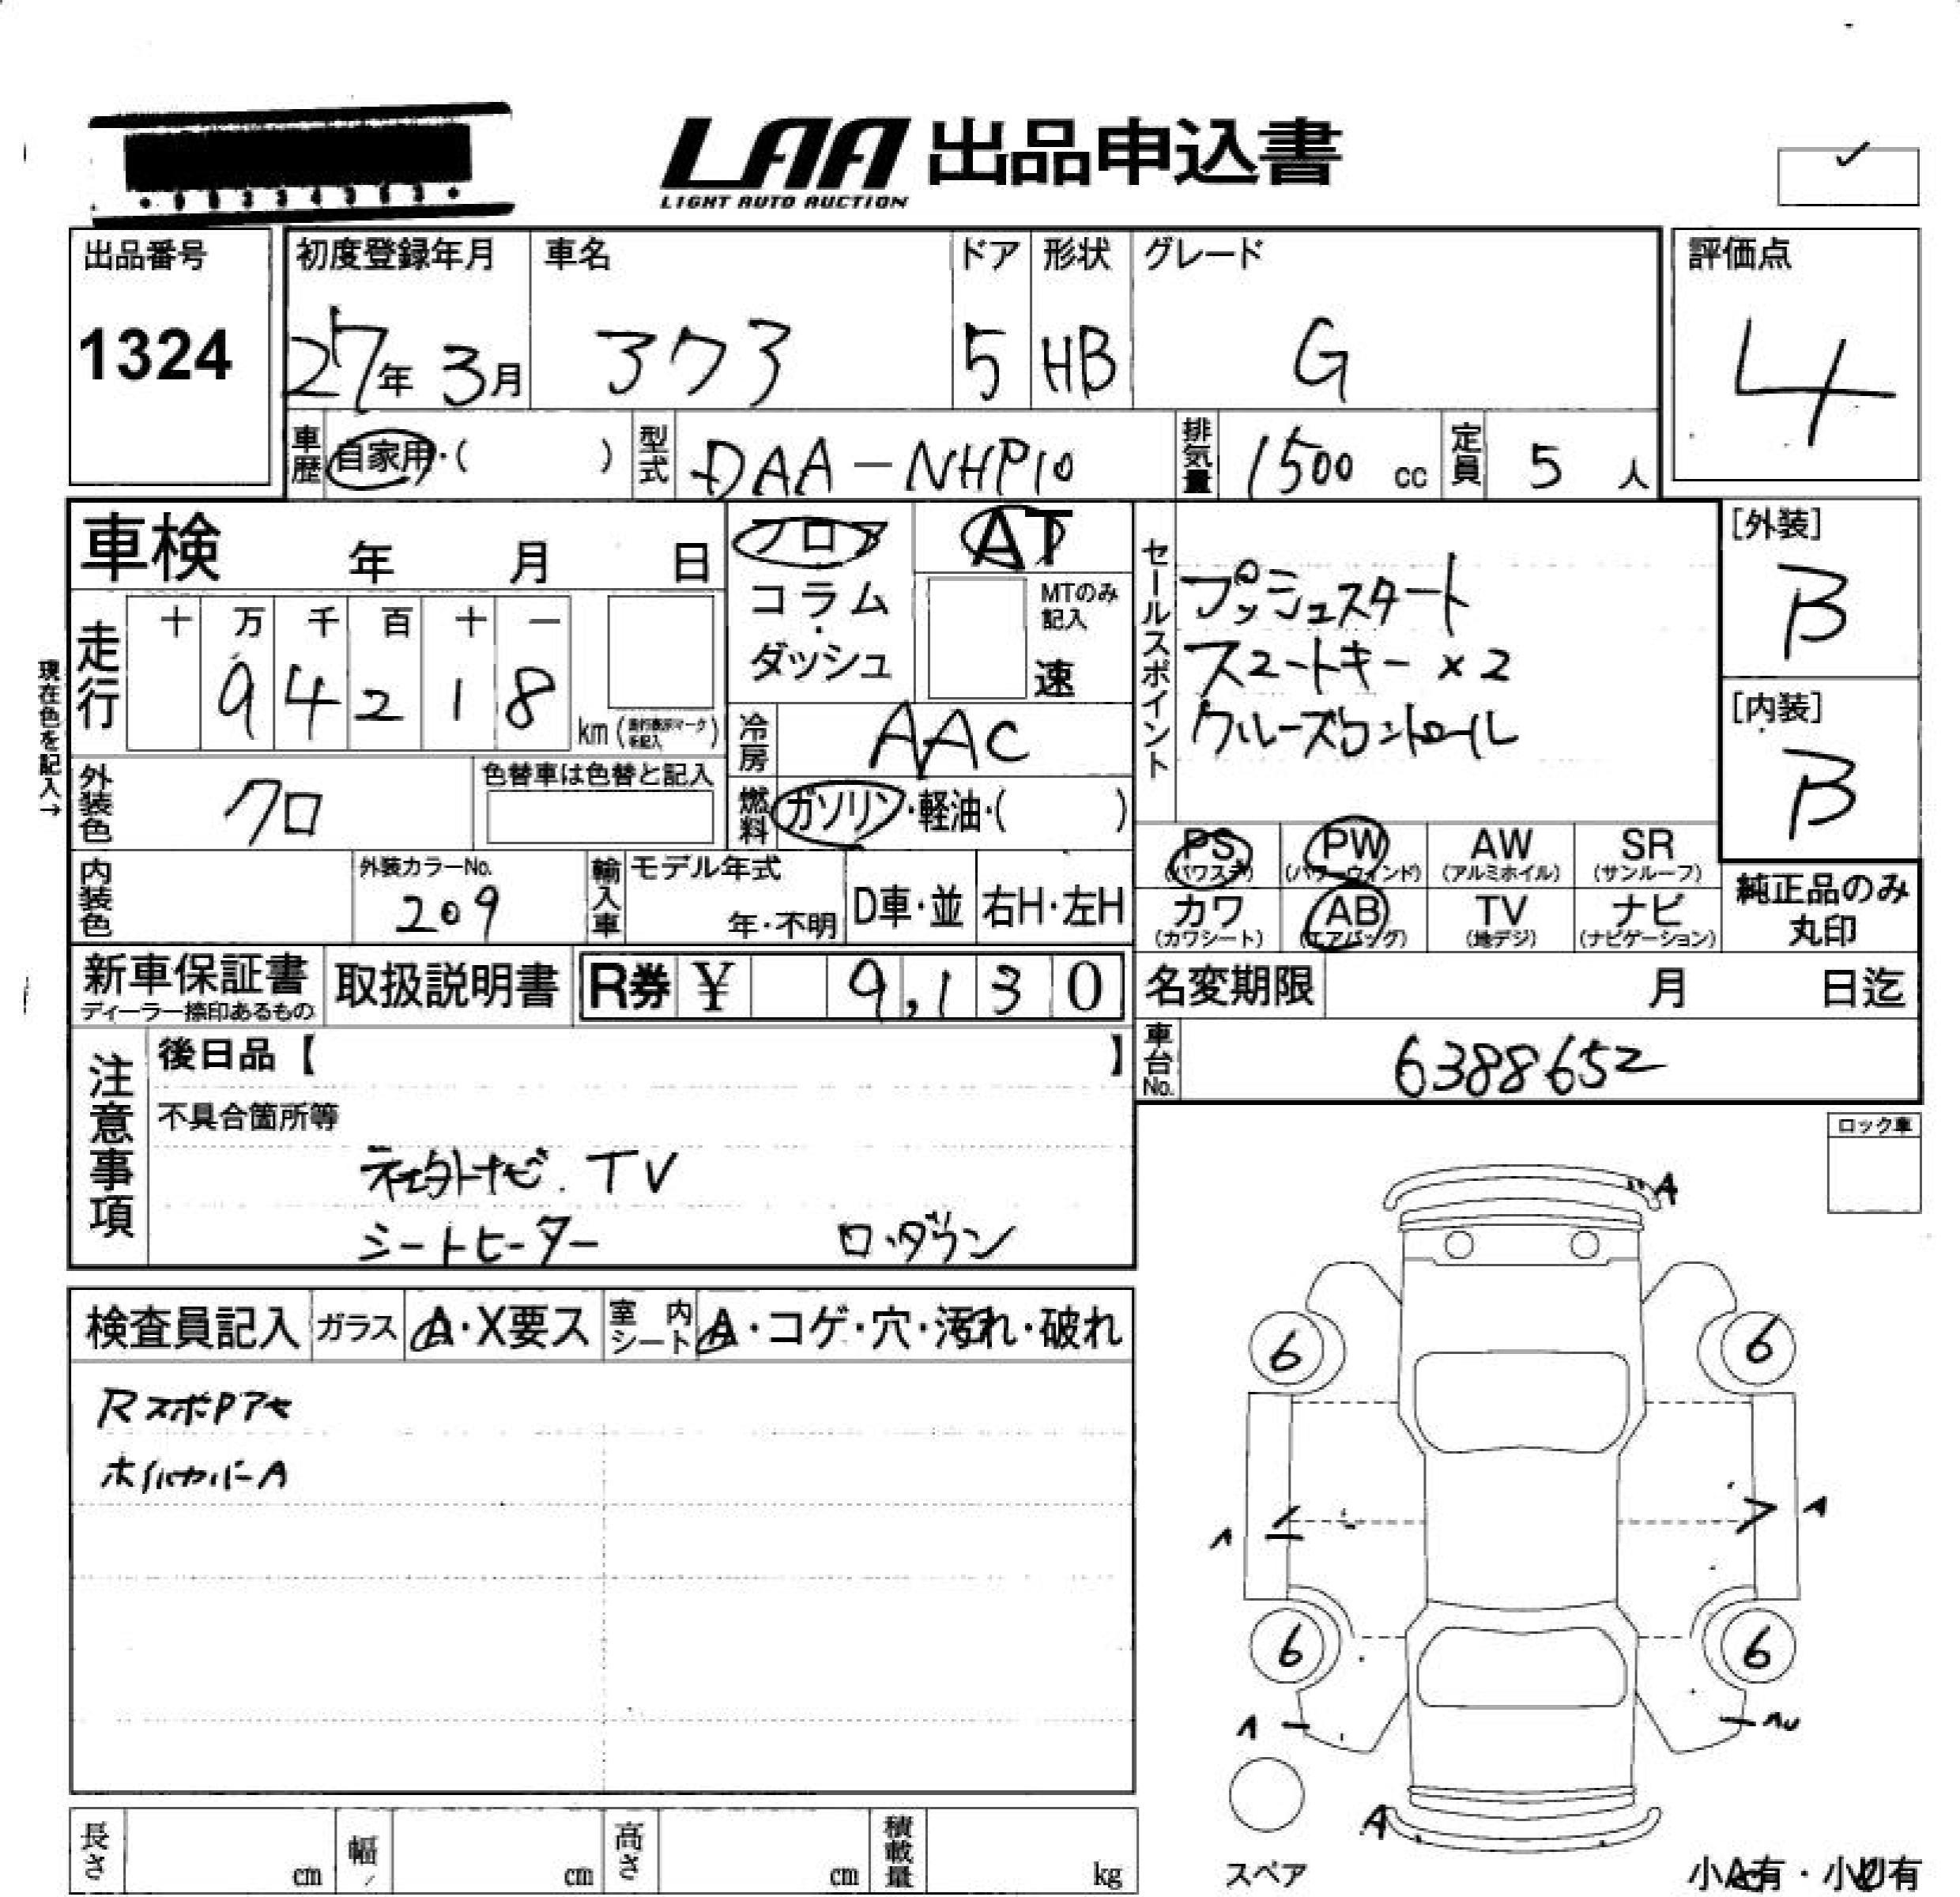 LAA 出品申込書
LIGHT AUTO AUCTION
出品番号
1324
初度登録年月
27年 3月
車名
アクア
ドア
5
形状
HB
グレード
G
評価点
4
車歴
自家用・( )
型式
DAA-NHP10
排気量
1500 cc
定員
5 人
車検 年 月 日
フロア
コラム
・
ダッシュ
AT
MTのみ
記入
速
現在色を記入→
走行
十 万 千 百 十 一
9 4 2 1 8
km
冷房
AAC
外装色
クロ
色替車は色替と記入
燃料
ガソリン・軽油・( )
内装色
外装カラーNo.
209
輸入車
モデル年式
年・不明
D車・並
右H・左H
セールスポイント
プッシュスタート
スマートキー ×2
クルーズコントロール
[外装]
B
[内装]
B
PS
(パワステ)
PW
(パワーウィンド)
AW
(アルミホイル)
SR
(サンルーフ)
カワ
(カワシート)
AB
(エアバッグ)
TV
(地デジ)
ナビ
(ナビゲーション)
純正品のみ
丸印
新車保証書
ディーラー捺印あるもの
取扱説明書
R券 ¥ 9,130
名変期限 月 日迄
車台No.
6388652
注意事項
後日品【 】
不具合箇所等
社外ナビ. TV
シートヒーター ローダウン
ロック車
検査員記入
ガラス
A・X要ス
室内
シート
A・コゲ・穴・汚れ・破れ
RスポPアセ
ホイルカバーA
A
6
6
A
A
6
6
A
AU
A
スペア
小A有・小U有
長さ cm
幅 cm
高さ cm
積載量 kg